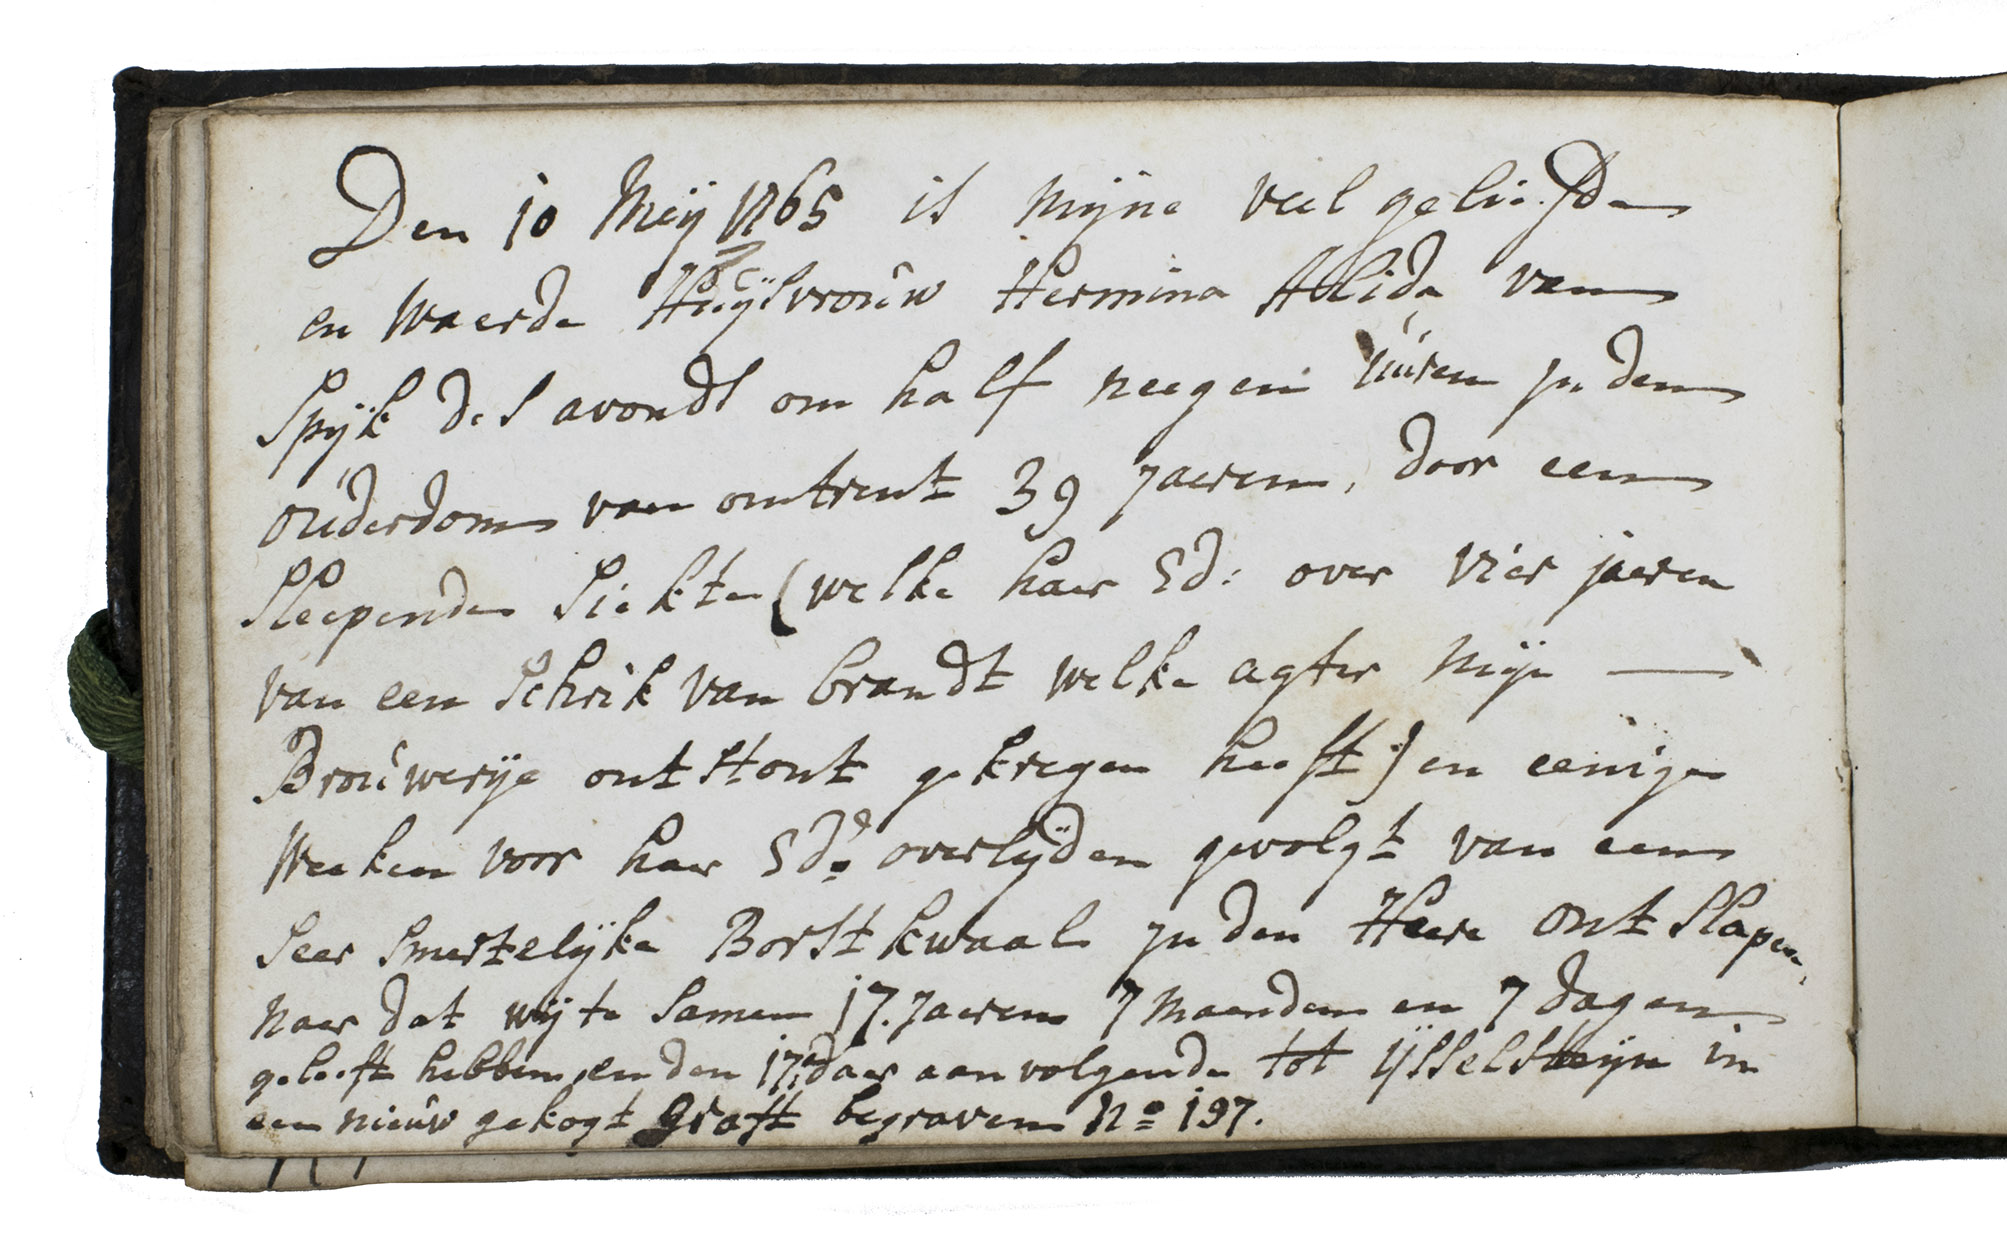 Den 10 Meij 1765 is mijne veel geliefde
en waerde Huijsvrouw Hermina Alida van
Spijk des avonds om half neegen uuren in den
ouderdom van omtrent 39 Jaeren, door een
sleepende Siekte (welke haer Ed: over vier jaeren
van een Schrik van brandt welke agter mijn —
Brouwerije ontstont gekregen heeft:) en eenige
Weeken voor haer Ed:s overlijden gevolgt van een
seer smertelijke Borst kwaal in den Heere ont slapen,
naer dat wij te samen 17. Jaeren 7 maenden en 7 dagen
geleeft hebben, en den 17:e daer aanvolgende tot IJsselsteijn in
een nieuw gekogt graft begraven No 197.